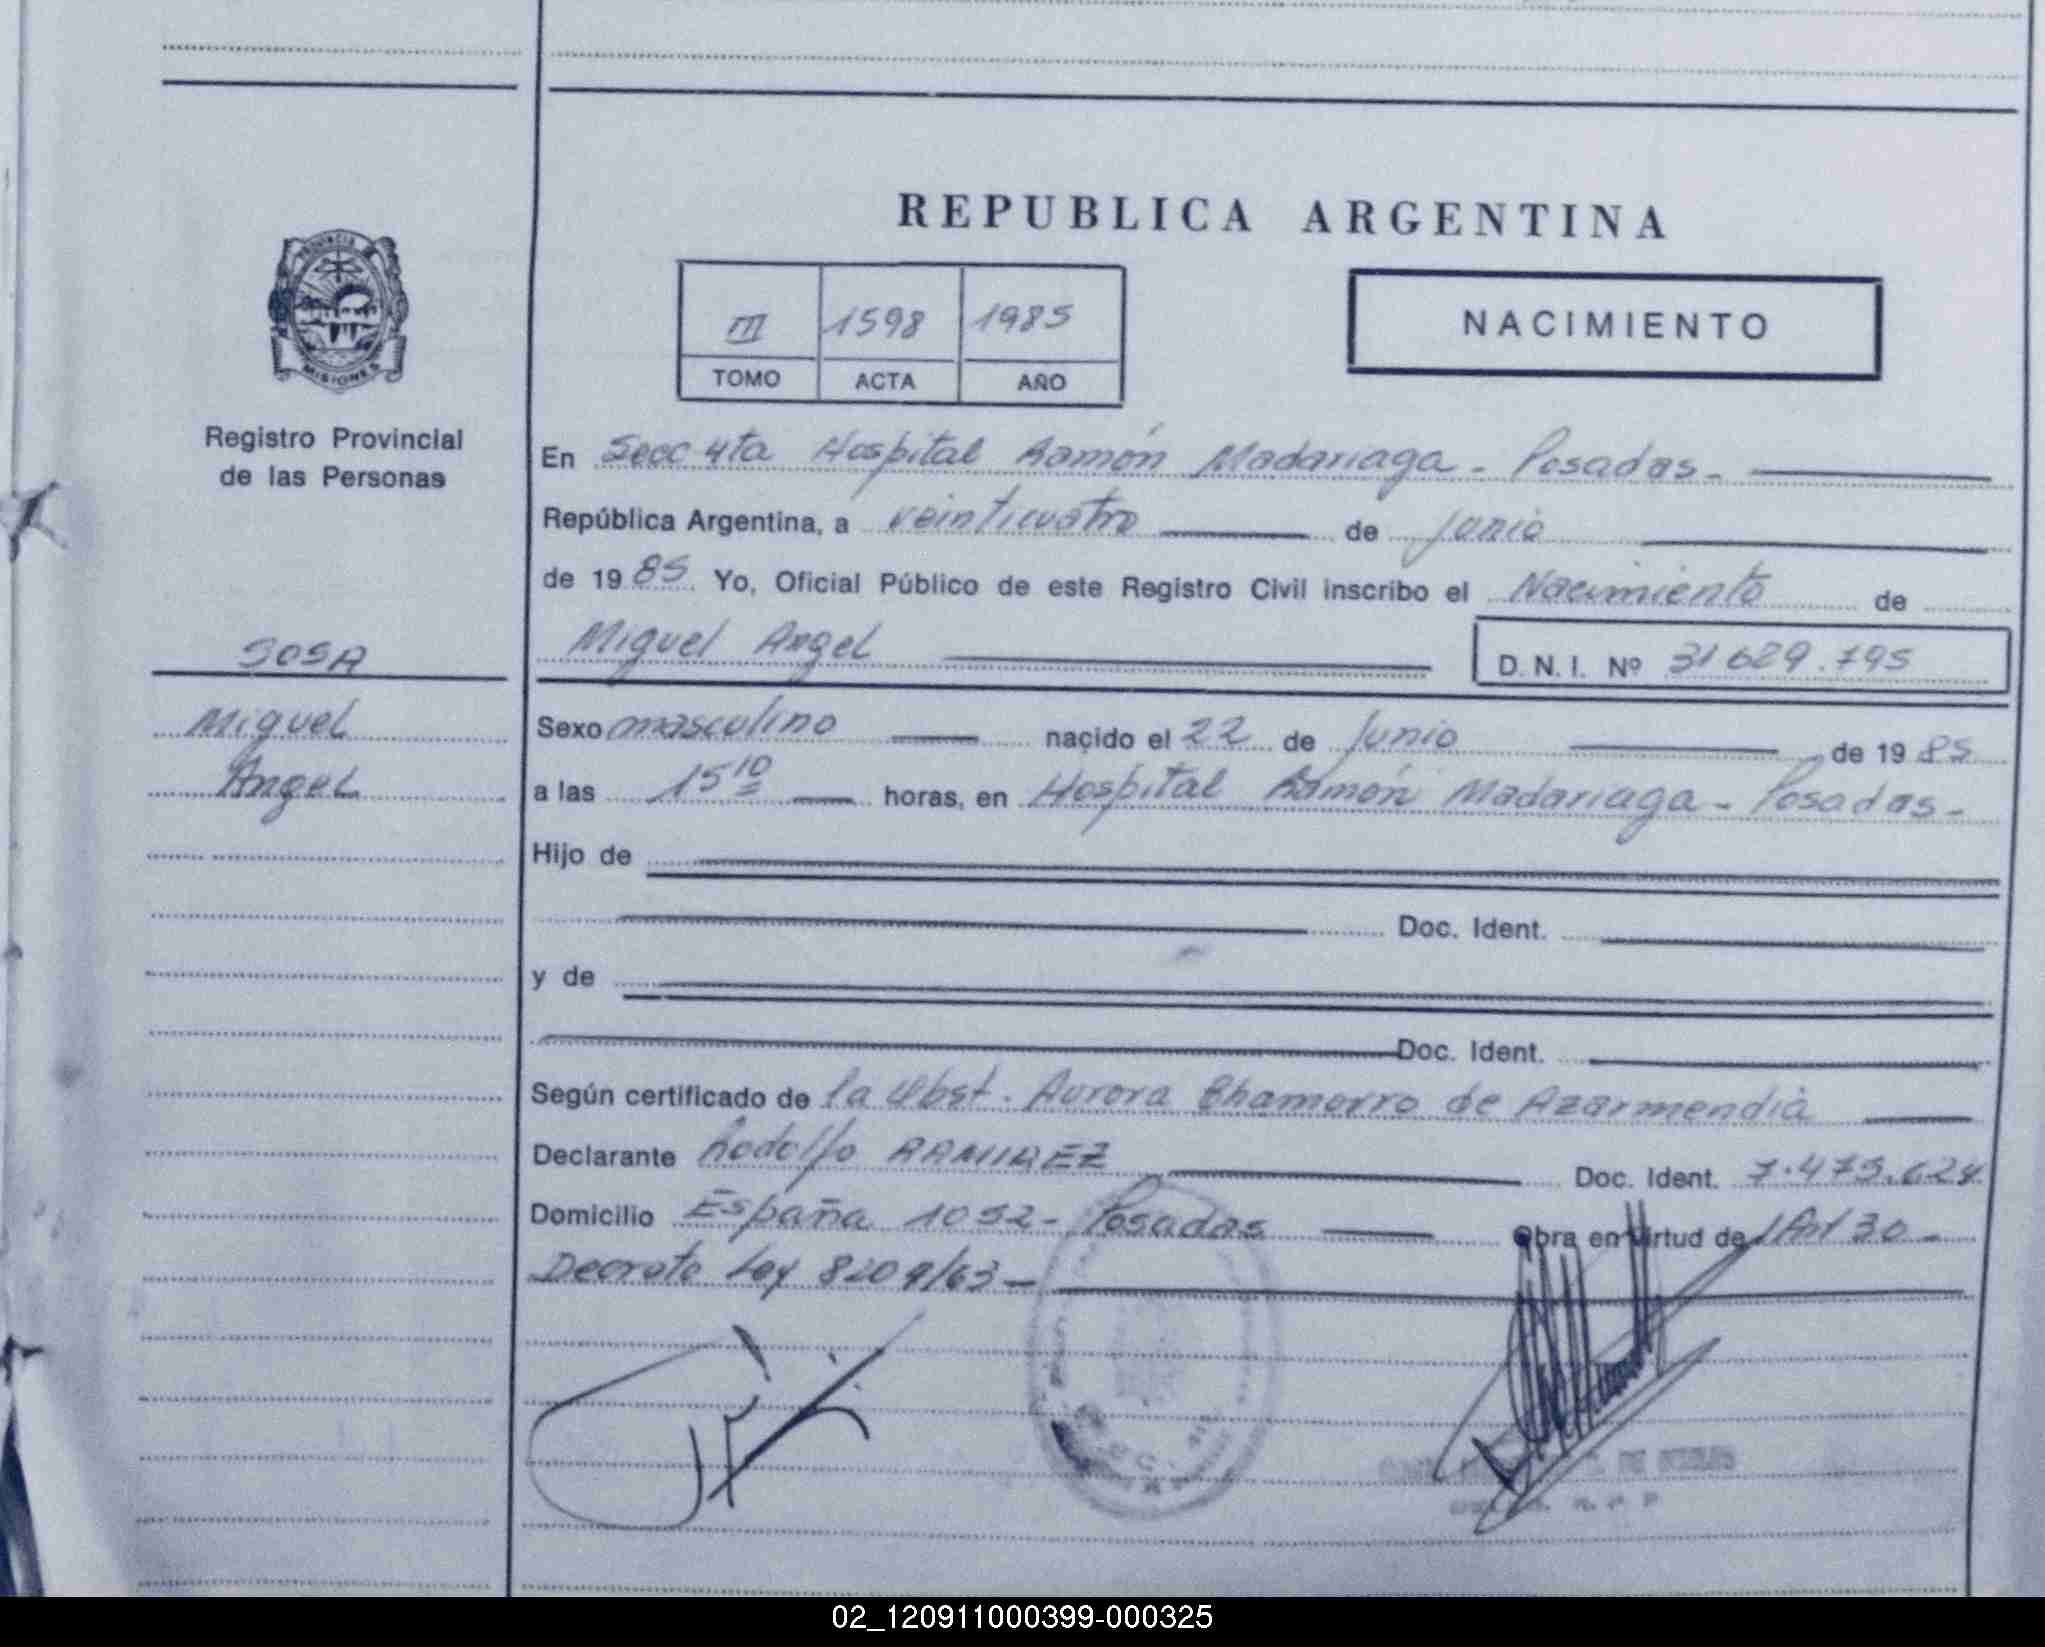 REPUBLICA ARGENTINA
PROVINCIA DE
MISIONES
III 1598 1985
TOMO ACTA AÑO
NACIMIENTO
Registro Provincial
de las Personas
En Secc 4ta Hospital Ramón Madariaga - Posadas -
República Argentina, a veinticuatro de Junio
de 1985 Yo, Oficial Público de este Registro Civil inscribo el Nacimiento de
SOSA
Miguel Angel
D. N. I. Nº 31 629.795
Miguel
Angel
Sexo masculino nacido el 22 de Junio de 1985
a las 15 10 horas, en Hospital Ramón Madariaga - Posadas -
Hijo de
Doc. Ident.
y de
Doc. Ident.
Según certificado de la Obst. Aurora Chamorro de Azarmendia
Declarante Rodolfo RAMIREZ Doc. Ident. 7.475.624
Domicilio España 1052 - Posadas Obra en virtud de Art 30 -
Decreto Ley 8209/63 -
02_120911000399-000325